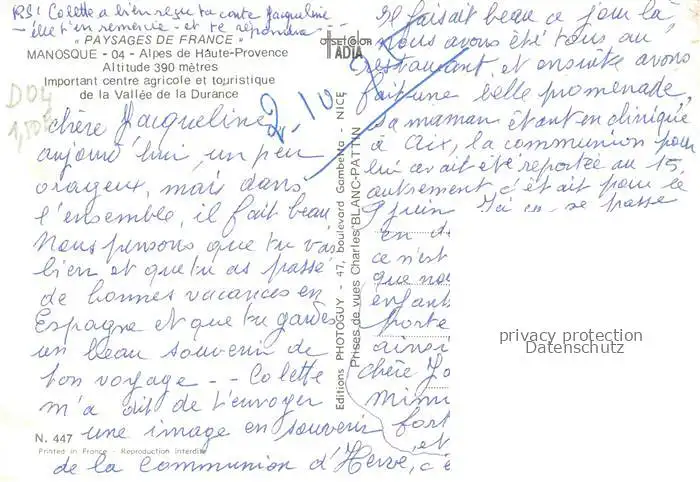 P.S! Colette a bien reçu ta carte Jacqueline
- elle t'en remercie - et te répondra - -
"PAYSAGES DE FRANCE"
MANOSQUE - 04 - Alpes de Haute-Provence
Altitude 390 mètres
Important centre agricole et touristique
de la Vallée de la Durance
D04
offset color
ADIA
2,10
chère Jacqueline,
aujourd'hui, un peu
orageux, mais dans
l'ensemble, il fait beau
Nous pensons que tu vas
bien et que tu as passé
de bonnes vacances en
Espagne et que tu gardes
un beau souvenir de
ton voyage - - Colette
m'a dit de t'envoyer
une image en souvenir
de la Communion d'Hervé, c'é
N. 447
Printed in France - Reproduction interdite
Editions PHOTOGUY - 47, boulevard Gambetta - NICE
Prises de vues Charles BLANC-PATTIN
Il faisait beau ce jour là
Nous avons été tous au
restaurant et ensuite avons
fait une belle promenade,
sa maman étant en clinique
à Aix, la communion pour
lui avait été reportée au 15,
autrement, c'était pour le
9 juin se passe
en
ce n'est
que no
enfant
porte
ainsi
chère
Mimi
fort
et
privacy protection
Datenschutz